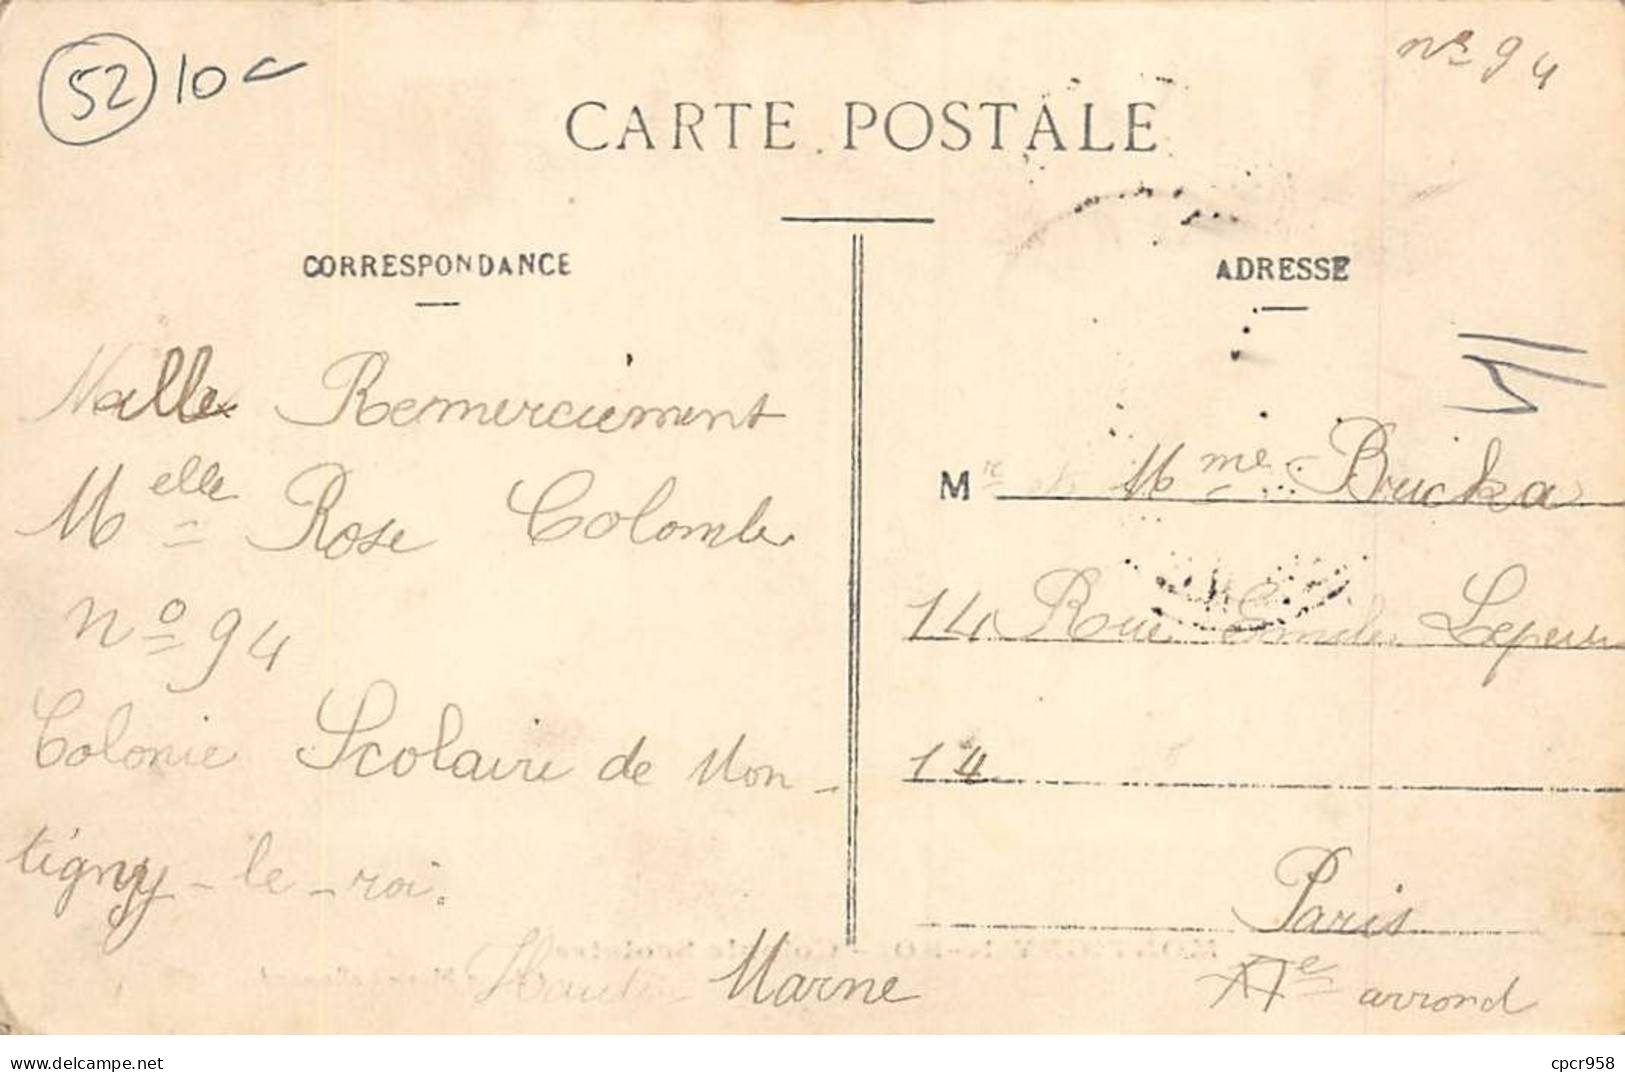 52 10
nº 94
CARTE POSTALE
CORRESPONDANCE
ADRESSE
Remerciement
Melle Rose Colombe
nº 94
Colonie Scolaire de Mon-
tigny-le-roi.
Haute Marne
M Mme Bricka
14 Rue Emile Lepeu
14
Paris
XIe arrond
www.delcampe.net
cpcr958